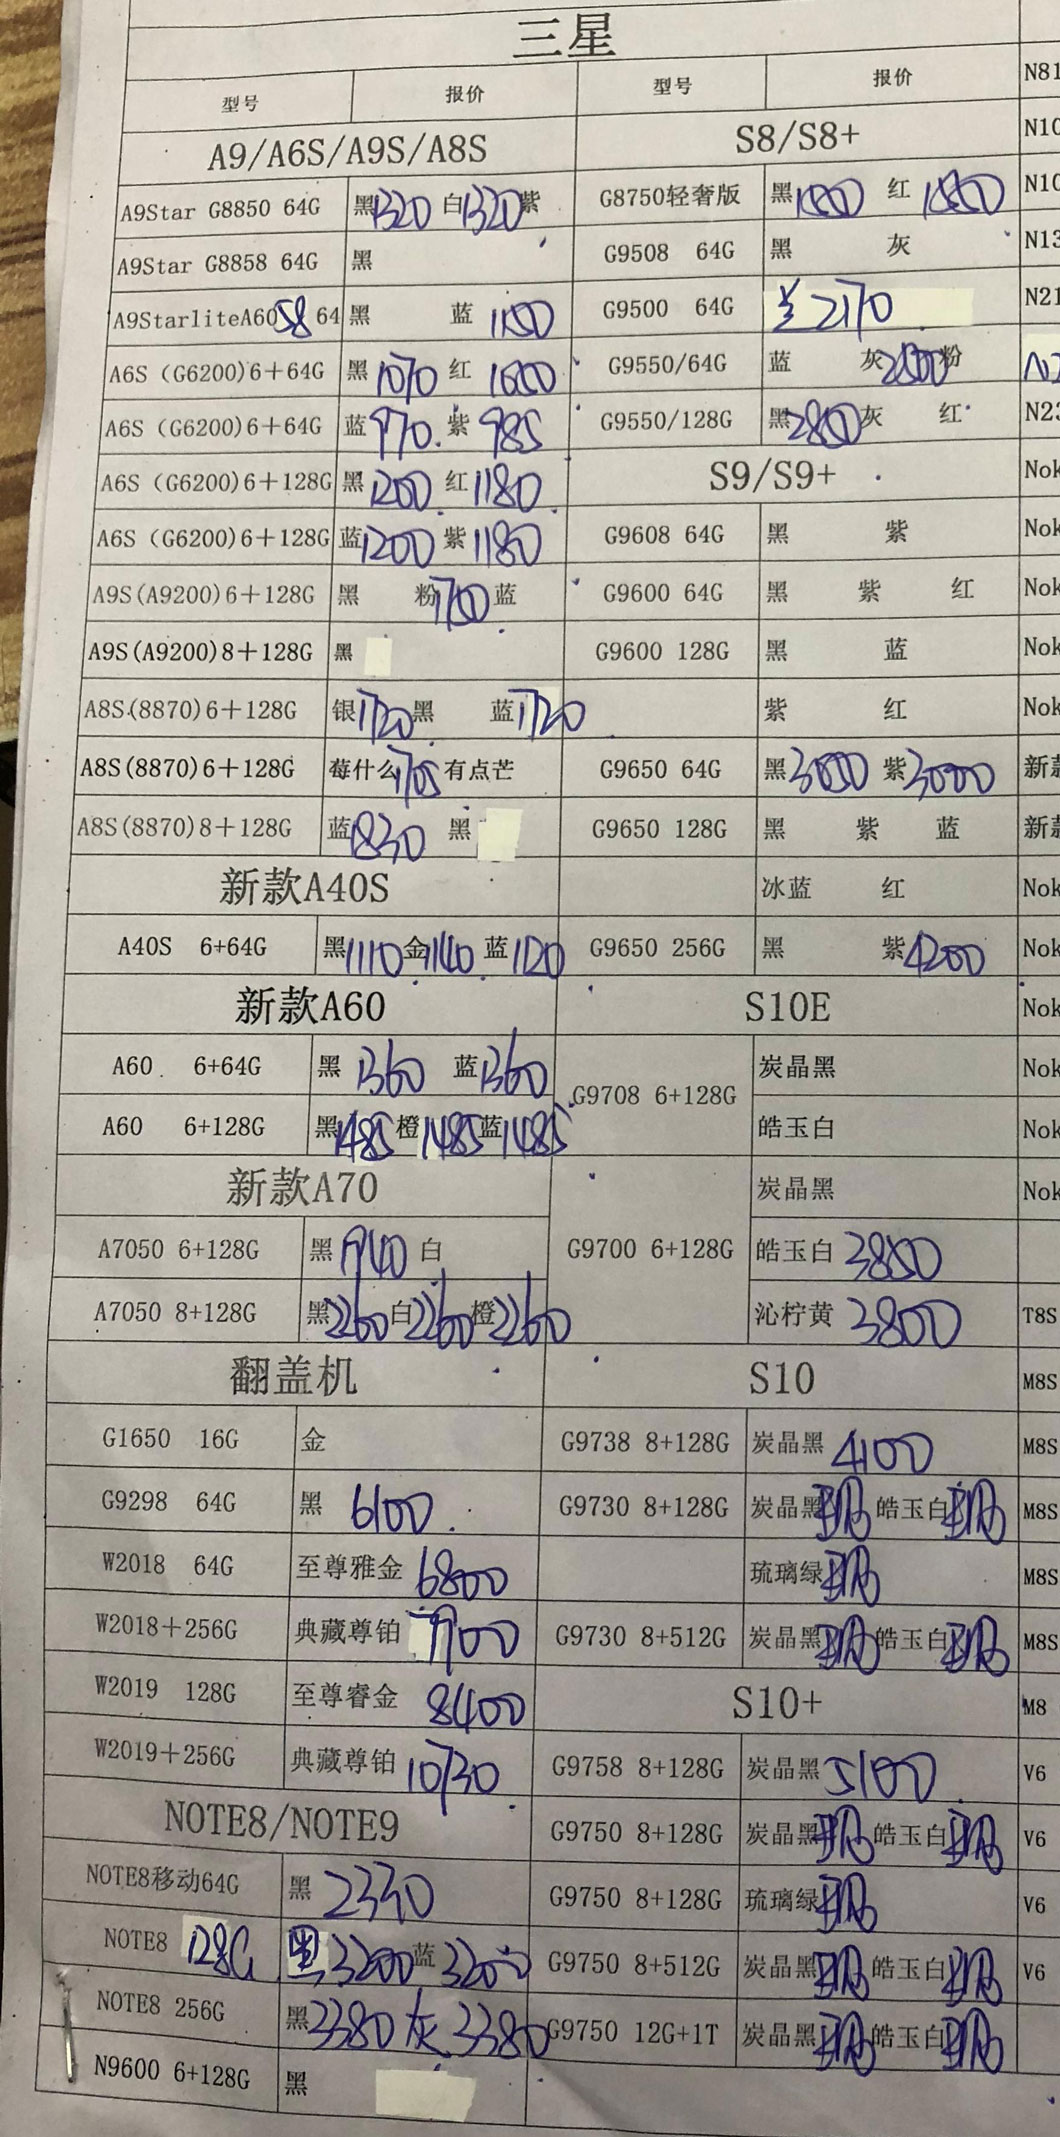 三星
型号 报价 型号 报价 N81
A9/A6S/A9S/A8S S8/S8+ N10
A9Star G8850 64G 黑1320 白1320 紫 G8750轻奢版 黑 红 N10
A9Star G8858 64G 黑 G9508 64G 黑 灰 N13
A9StarliteA6058 64 黑 蓝 G9500 64G ¥2170 N21
A6S (G6200)6+64G 黑1070 红 G9550/64G 蓝 灰 粉
A6S (G6200)6+64G 蓝970. 紫985 G9550/128G 黑 灰 红 N23
A6S (G6200)6+128G 黑1200 红1180 S9/S9+ Nok
A6S (G6200)6+128G 蓝1200 紫1180 G9608 64G 黑 紫 Nok
A9S(A9200)6+128G 黑 粉 蓝 G9600 64G 黑 紫 红 Nok
A9S(A9200)8+128G 黑 G9600 128G 黑 蓝 Nok
A8S(8870)6+128G 银1720 黑 蓝1720 紫 红 Nok
A8S(8870)6+128G 莓什么1705 有点芒 G9650 64G 黑 紫3000 新款
A8S(8870)8+128G 蓝1830 黑 G9650 128G 黑 紫 蓝 新款
新款A40S 冰蓝 红 Nok
A40S 6+64G 黑1110 金1140 蓝1120 G9650 256G 黑 紫4200 Nok
新款A60 S10E Nok
A60 6+64G 黑1360 蓝1360 G9708 6+128G 炭晶黑 Nok
A60 6+128G 黑1485 橙1485 蓝1485 皓玉白 Nok
新款A70 炭晶黑 Nok
A7050 6+128G 黑1940 白 G9700 6+128G 皓玉白
A7050 8+128G 黑2260 白2260 橙2260 沁柠黄 3800 T8S
翻盖机 S10 M8S
G1650 16G 金 G9738 8+128G 炭晶黑 4100 M8S
G9298 64G 黑 6100. G9730 8+128G 炭晶黑 皓玉白 M8S
W2018 64G 至尊雅金 6800 琉璃绿 M8S
W2018+256G 典藏尊铂 7900 G9730 8+512G 炭晶黑 皓玉白 M8S
W2019 128G 至尊睿金 8400 S10+ M8
W2019+256G 典藏尊铂 10730 G9758 8+128G 炭晶黑 5100 V6
NOTE8/NOTE9 G9750 8+128G 炭晶黑 皓玉白 V6
NOTE8移动64G 黑 2330 G9750 8+128G 琉璃绿 V6
NOTE8 128G 黑3200 蓝3200 G9750 8+512G 炭晶黑 皓玉白 V6
NOTE8 256G 黑3380 灰3380 G9750 12G+1T 炭晶黑 皓玉白
N9600 6+128G 黑